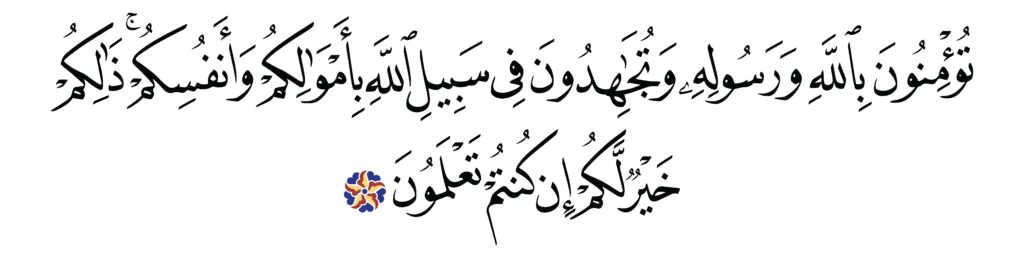 تُؤْمِنُونَ بِٱللَّهِ وَرَسُولِهِۦ وَتُجَٰهِدُونَ فِى سَبِيلِ ٱللَّهِ بِأَمْوَٰلِكُمْ وَأَنفُسِكُمْ ۚ ذَٰلِكُمْ
خَيْرٌ لَّكُمْ إِن كُنتُمْ تَعْلَمُونَ